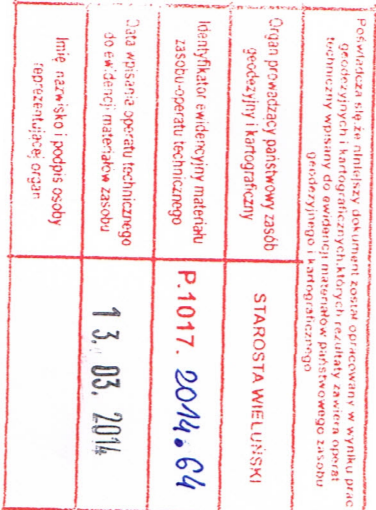 Poświadcza się że niniejszy dokument został opracowany w wyniku prac
geodezyjnych i kartograficznych,których rezultaty zawiera operat
techniczny wpisany do ewidencji materiałów państwowego zasobu
geodezyjnego i kartograficznego
Organ prowadzący państwowy zasób
geodezyjny i kartograficzny
STAROSTA WIELUŃSKI
Identyfikator ewidencyjny materiału
zasobu-operatu technicznego
P.1017. 2014.64
Data wpisania operatu technicznego
do ewidencji materiałów zasobu
13. 03. 2014
Imię, nazwisko i podpis osoby
reprezentującej organ